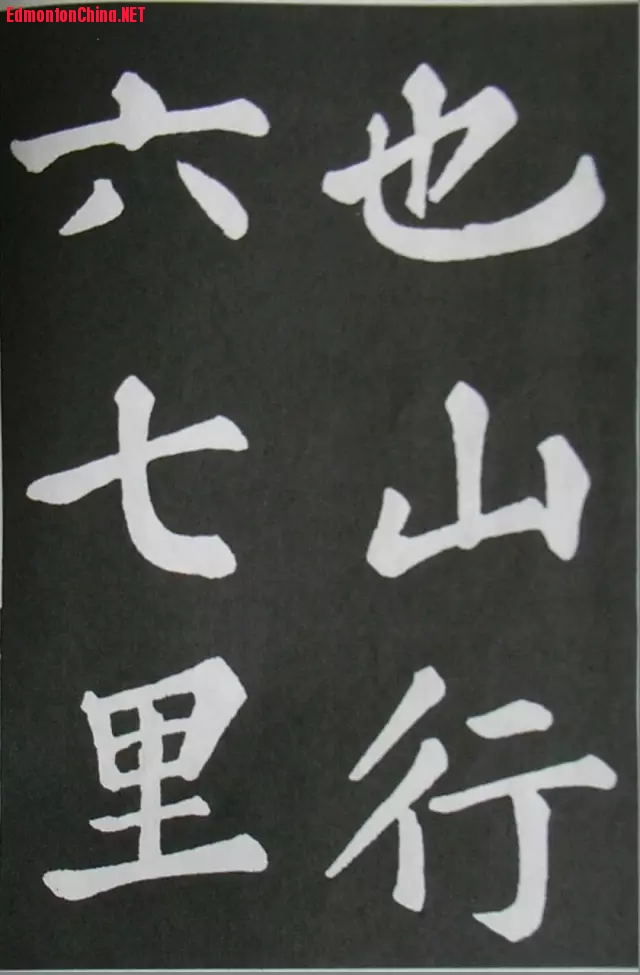 EdmontonChina.NET
也山行
六七里